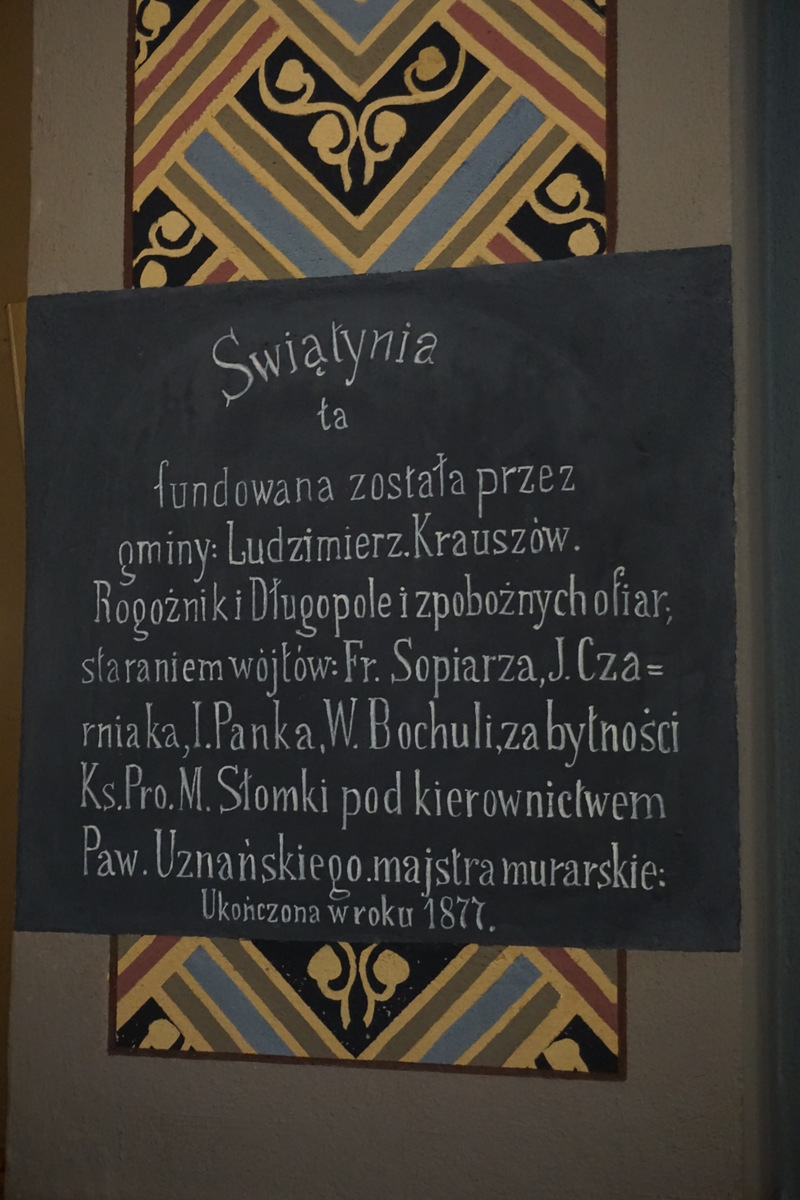 Swiątynia
ta
fundowana została przez
gminy: Ludzimierz. Krauszòw.
Rogożnik i Długopole i zpobożnych ofiar,
staraniem wòjtów: Fr. Sopiarza, J. Cza=
rniaka, I. Panka, W. Bochuli, za bytności
Ks. Pro. M. Słomki pod kierownictwem
Paw. Uznańskiego. majstra murarskie:
Ukończona w roku 1877.